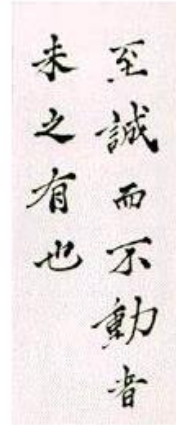 至誠而不動者
未之有也